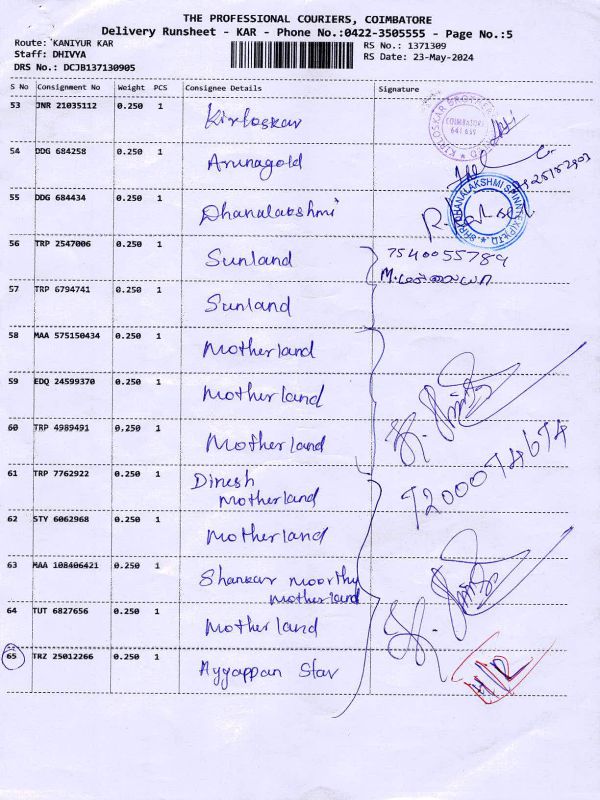 THE PROFESSIONAL COURIERS, COIMBATORE
Delivery Runsheet - KAR - Phone No.:0422-3505555 - Page No.:5
Route: KANIYUR KAR
RS No.: 1371309
Staff: DHIVYA
RS Date: 23-May-2024
DRS No.: DCJB137130905
S No Consignment No Weight PCS Consignee Details Signature
53 JNR 21035112 0.250 1 Kirloskar
COIMBATORE
54 DDG 684258 0.250 1 Arunagold
55 DDG 684434 0.250 1 Dhanalakshmi
56 TRP 2547006 0.250 1 Sunland 7540055789
57 TRP 6794741 0.250 1 Sunland
58 MAA 575150434 0.250 1 Motherland
59 EDQ 24599370 0.250 1 Motherland
60 TRP 4989491 0.250 1 Motherland
61 TRP 7762922 0.250 1 Dinesh
Motherland
7200074674
62 STY 6062968 0.250 1 Motherland
63 MAA 108406421 0.250 1 Shankar moorthy
motherland
64 TUT 6827656 0.250 1 Motherland
65 TRZ 25012266 0.250 1 Ayyappan Star